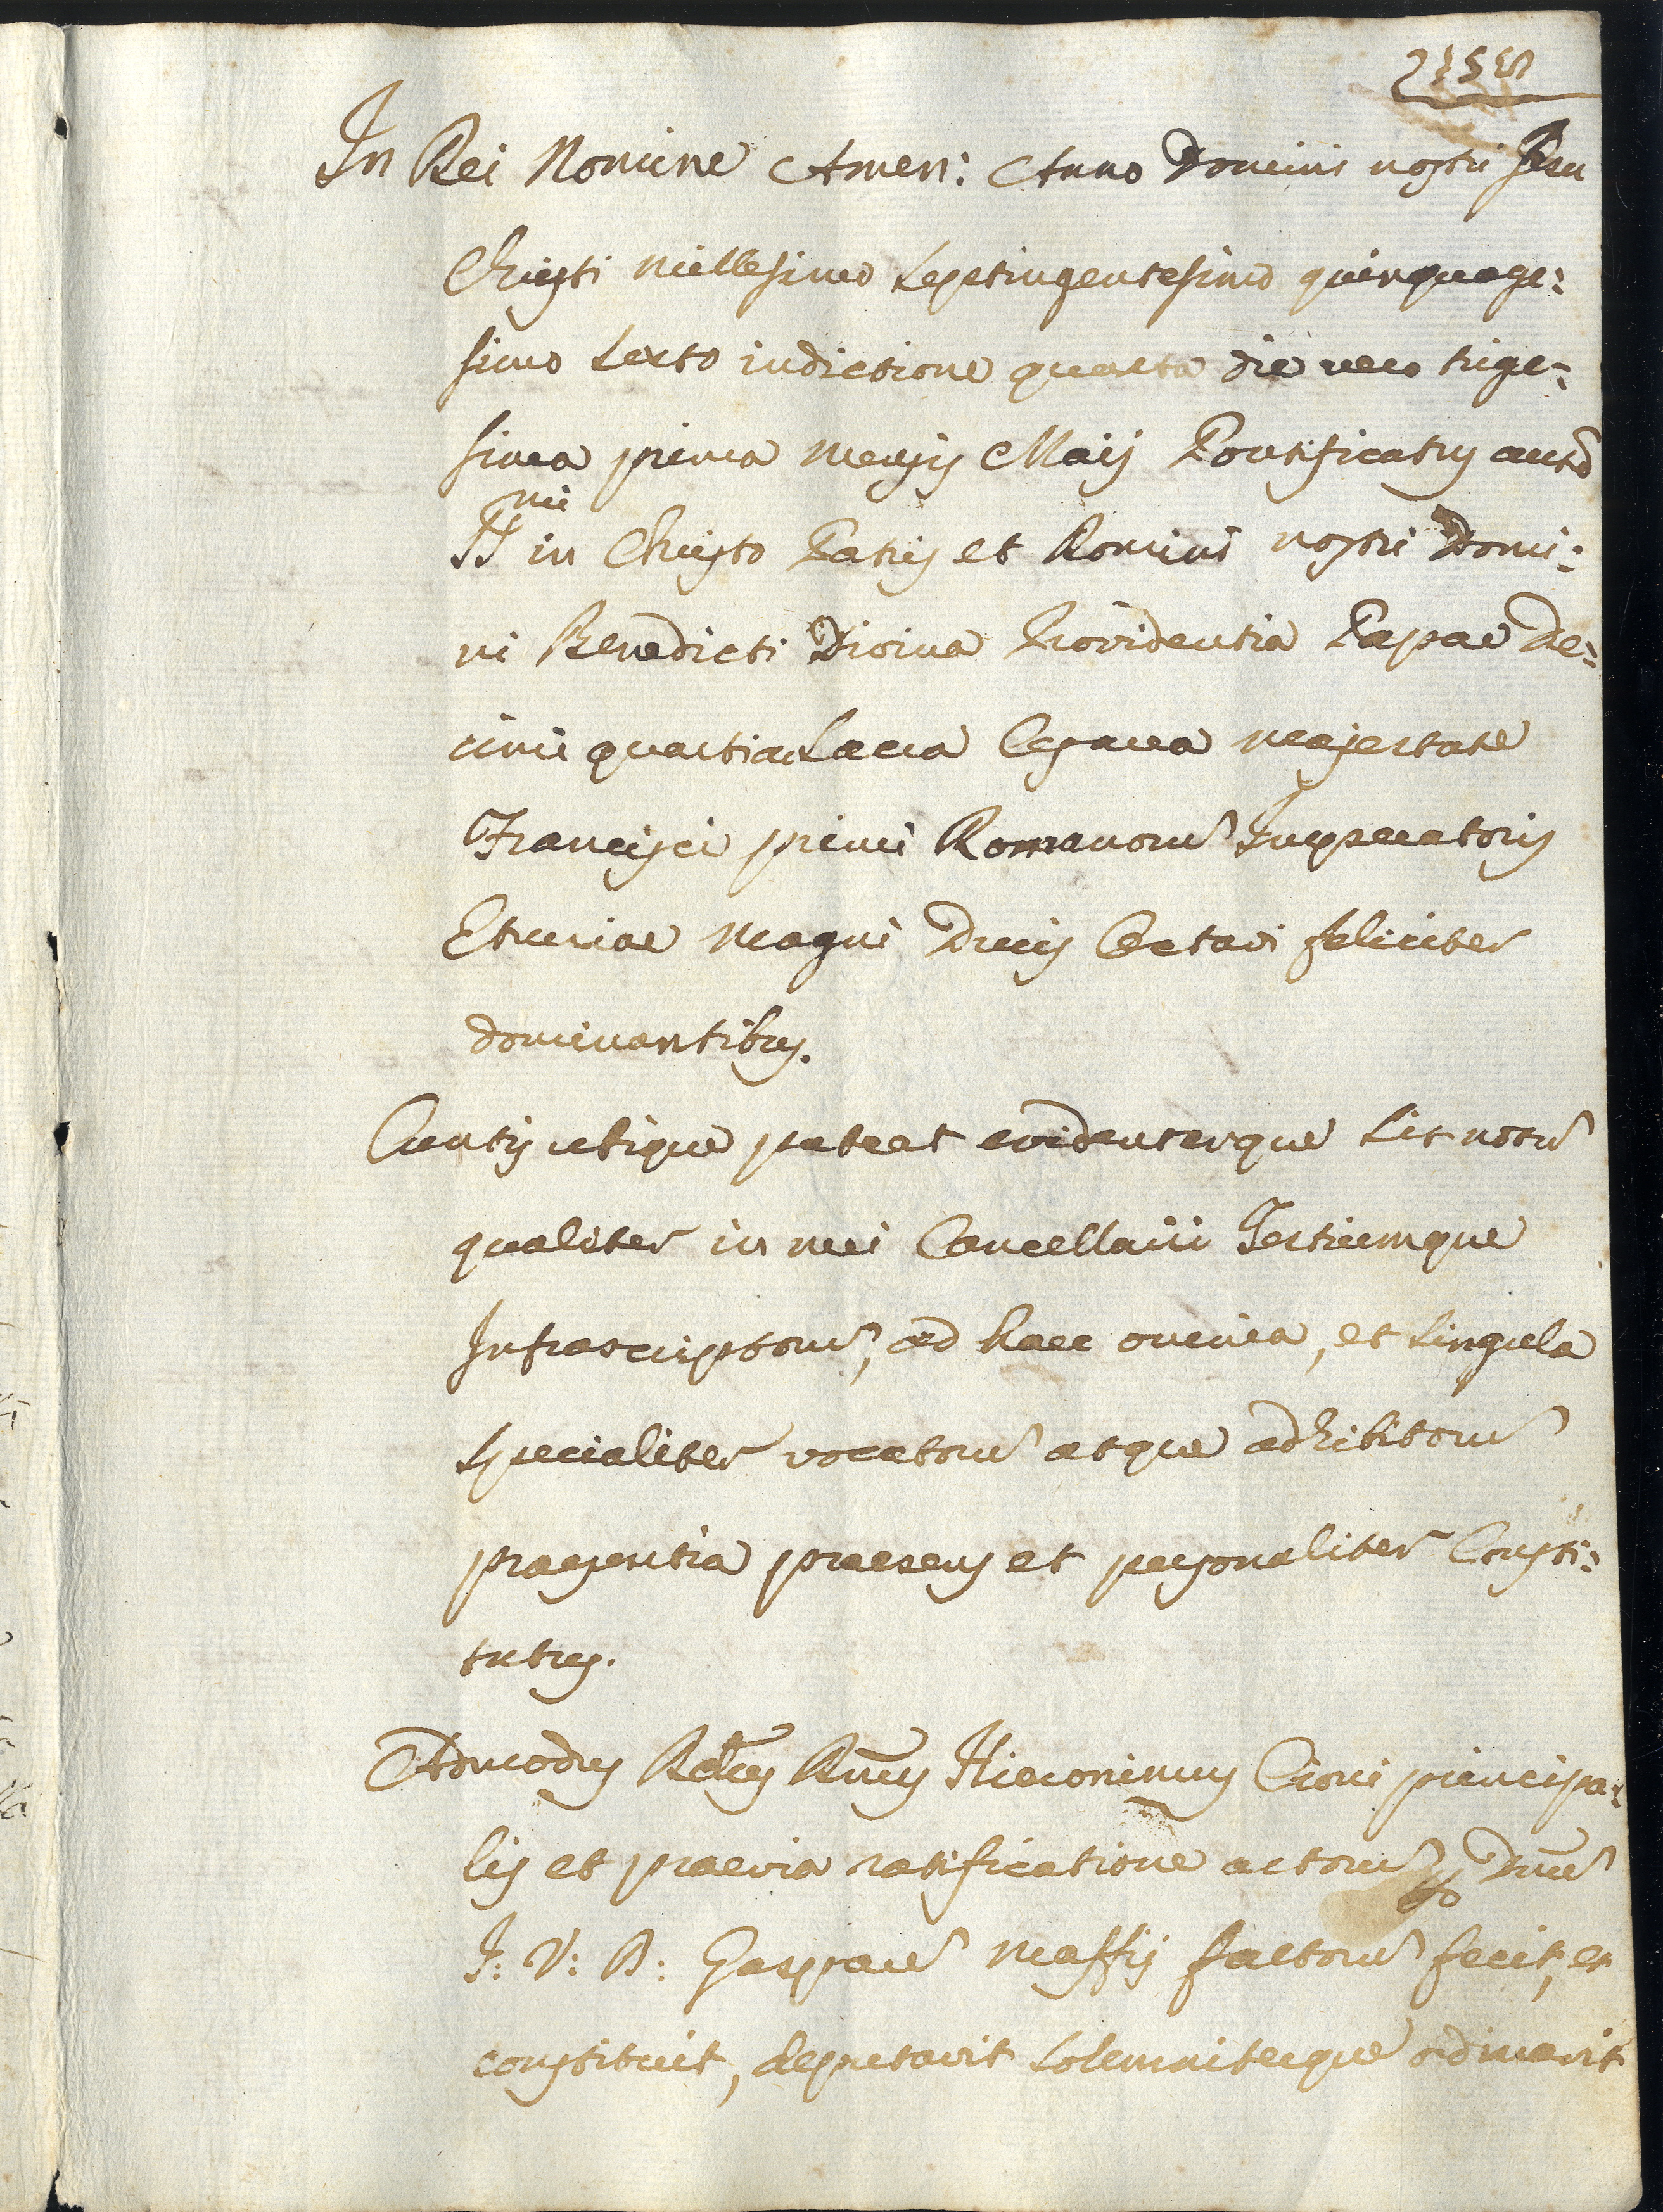 In Dei Nomine Amen: Anno Domini nostri Jesu
Christi millesimo septingentesimo quinquage:
simo sexto indictione quarta die vero trige:
sima prima mensis Maij Pontificatus autẽ
SS.mi in Christo Patris et Domini nostri Domi:
ni Benedicti Divina Providentia Papae de:
cimi quarti ac Sacra Cesarea majestate
Francisci primi Romanorũ Imperatoris
Etruriae magni Ducis Octavi feliciter
dominantibus.
Cunctis ubique pateat evidenterque sit notũ
qualiter in mei Cancellarii Testiumque
Infrascriptorũ, ad haec omnia, et singula
specialiter vocatorũ atque adhibitorũ
praesentia praesens et personaliter Consti:
tutus.
Admodus Rdus Dnus Hieronimus Cioni principa:
lis et praevia ratificatione actorũ per Dnũ
J: V: D: Gasparẽ Maffij factorũ fecit, et
constituit, deputavit solemniterque ordinavit